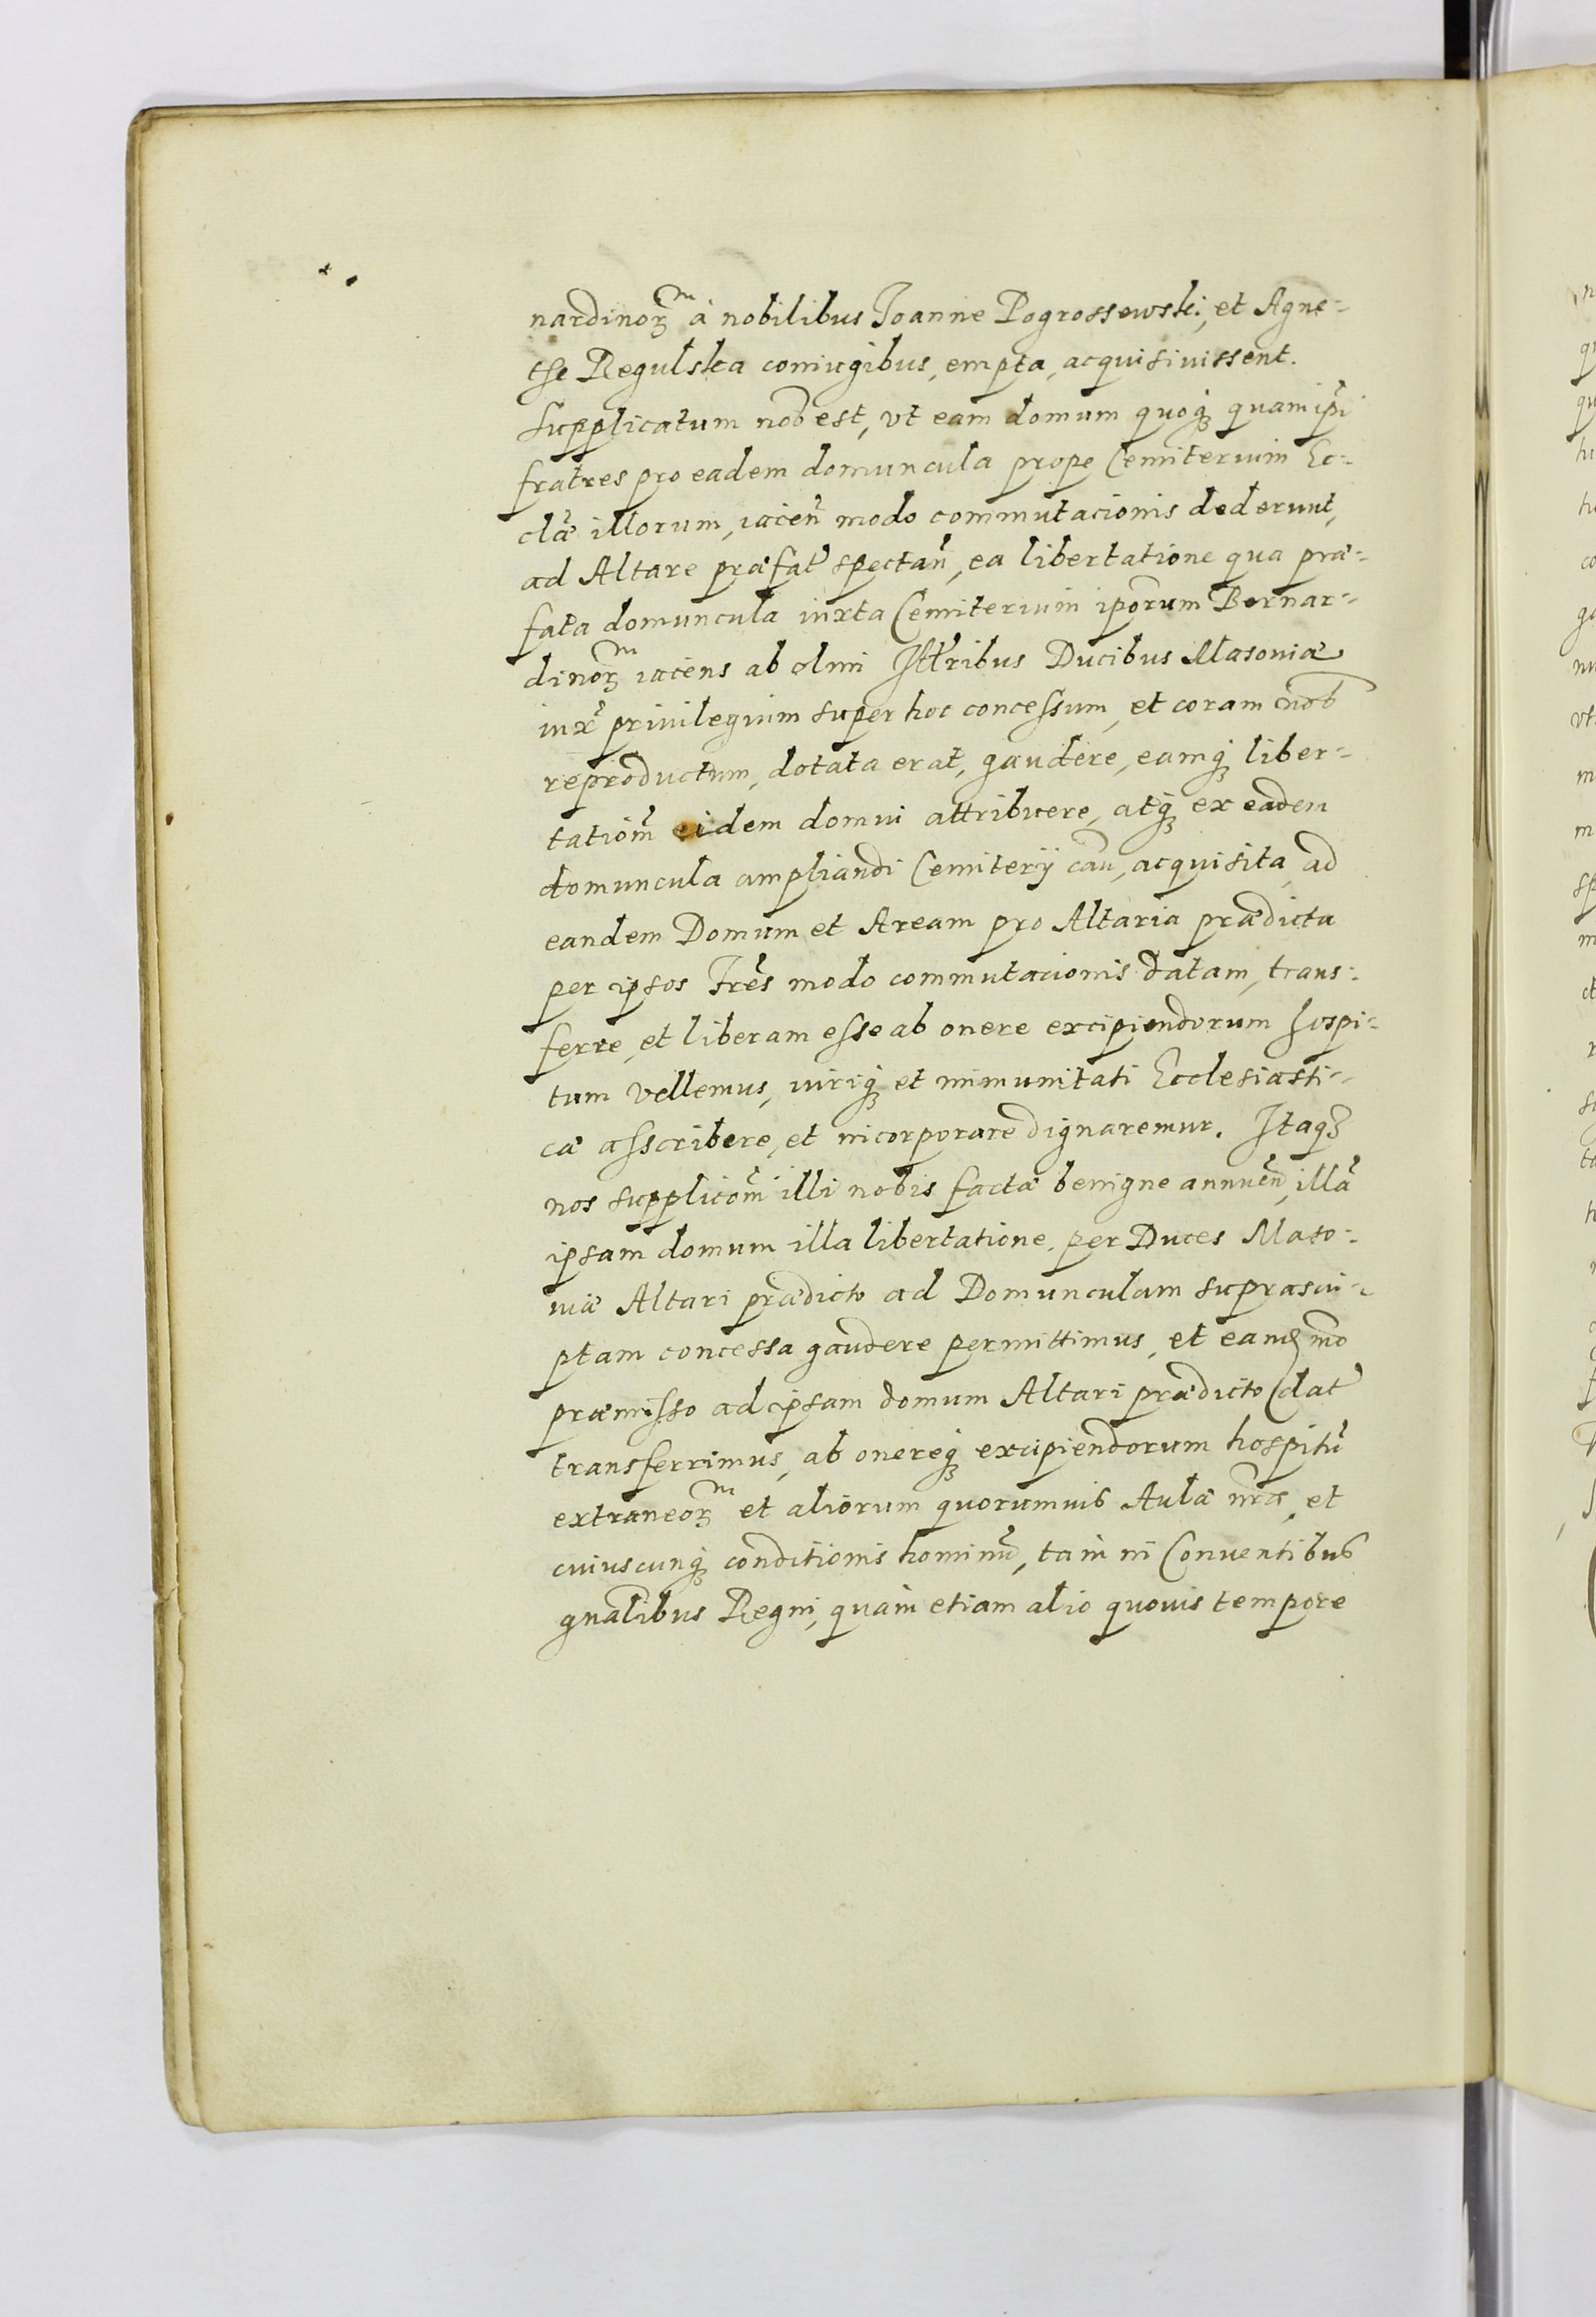 nardinorꝫ à nobilibus Joanne Pogrossewski, et Agne-
the Regulska coniugibus, empta, acquisiuissent.
Supplicatum nob̃ est, vt eam domum quoqꝫ quam ip̃i
fratres pro eadem domuncula prope Cemiterium Ec-
clæ̃ illorum, iaceñ modo commutacionis dederunt,
ad Altare præfat̃ spectañ, ea libertatione qua præ-
fata domuncula iuxta Cemiterium ip̃orum Bernar-
dinorꝫ iacens ab olim Ill̃ribus Ducibus Masouiæ
iux̃ priuilegium super hoc concessum, et coram nob̃
reproductum, dotata erat, gaudere, eamqꝫ liber-
tatiom̃ eidem domui attribuere, atqꝫ ex eadem
domuncula ampliandi Cemiterij cau͂, acquisita, ad
eandem Domum et Aream pro Altaria prædicta
per ipsos Fr̃es modo commutacionis datam, trans-
ferre, et liberam esse ab onere excipiendorum hospi-
tum vellemus, iuriqꝫ et immunitati Ecclesiasti-
cæ asscribere, et incorporare dignaremur. Itaqꝫ
nos supplicom̃ illi nobis factæ benigne annueñ, illã
ipsam domum illa libertatione, per Duces Maso-
uiæ Altari prædicto ad Domunculam suprascri-
ptam concessa gaudere permittimus, et eamqꝫ mõ
præmisso ad ipsam domum Altari prædicto dat̃
transferrimus, ab onereqꝫ excipiendorum hospitũ
extraneorꝫ et aliorum quorumuis Aulæ nr̃æ, et
cuiuscunqꝫ conditionis hominũ, tam in Conuentibus
gnãlibus Regni, quàm etiam alio quouis tempore